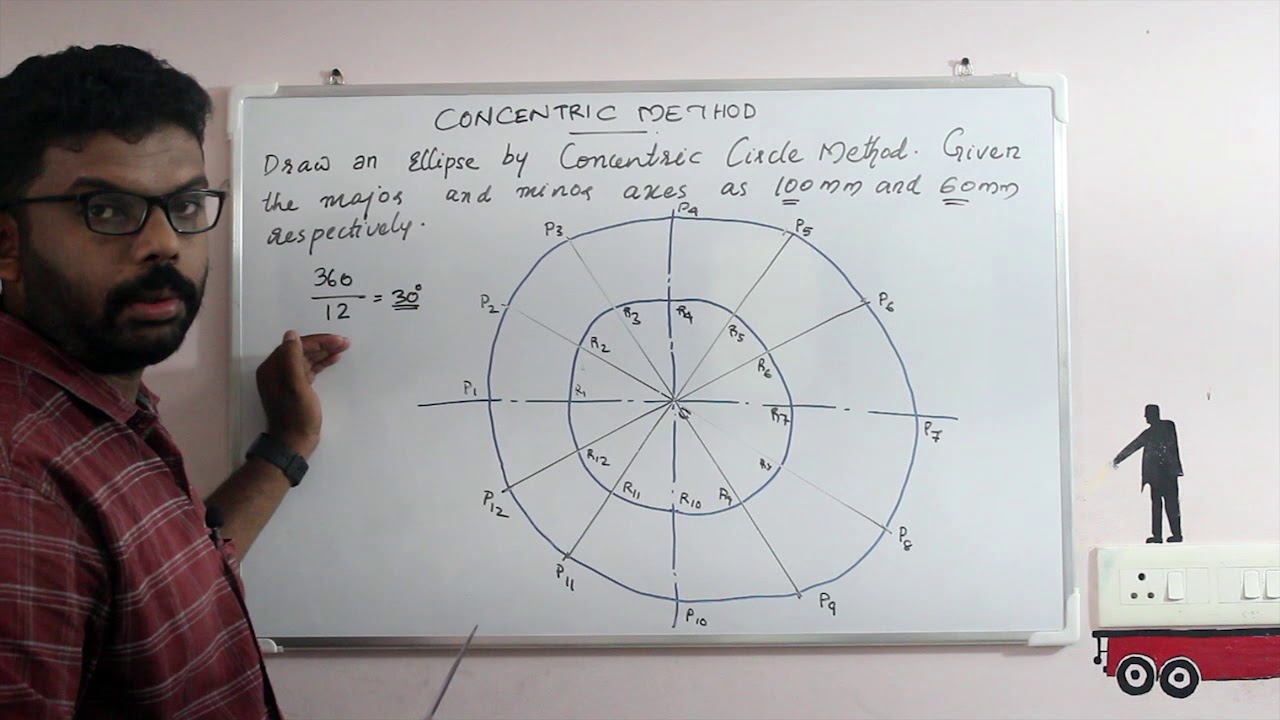 CONCENTRIC METHOD
Draw an Ellipse by Concentric Circle Method. Given
the major and minor axes as 100mm and 60mm
respectively.
360
12
= 30°
P4
P3
P5
P2
P6
R3
R4
R5
R2
R6
P1
R1
C
R7
P7
R12
R11
R10
R9
P12
P8
P11
P9
P10